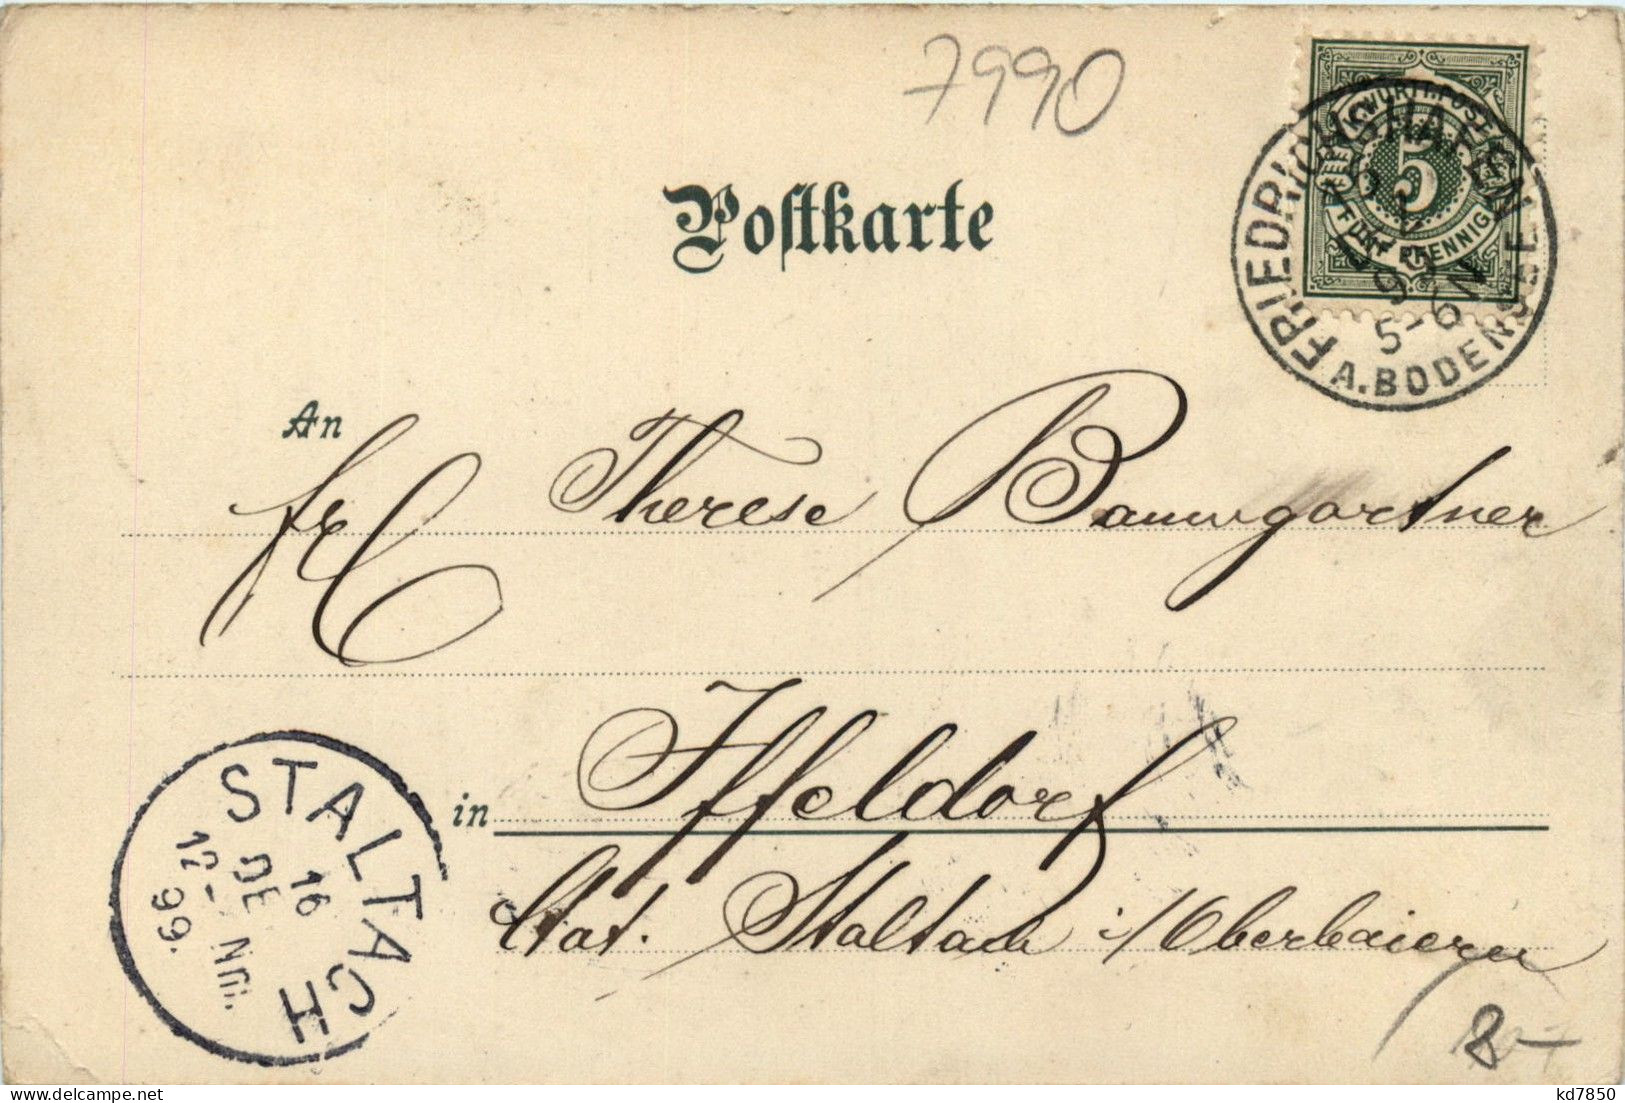 7990
K. WÜRTT. POST
5
FÜNF PFENNIG
FRIEDRICHSHAFEN
5-6N
A. BODENSEE
Postkarte
An
Frl Therese Baumgartner
in Iffeldorf
Stat. Staltach i/Oberbaiern
STALTACH
16
DE
12- Nm.
99.
8-
kd7850